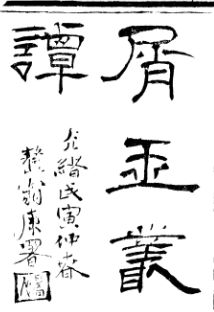 屑玉叢
譚
光緒戊寅仲春
蔡爾康署